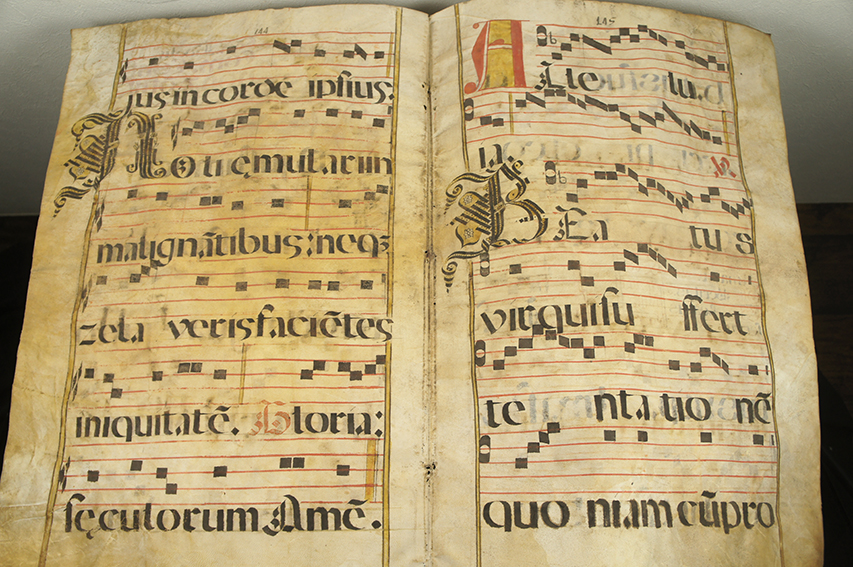 144
ius in corde ipsius:
Noli ęmulari in
malignãtibus: neqz
zela veris faciẽtes
iniquitatẽ. Gloria:
sęculorum Amẽ.
145
Alle lu
ia
BEa tus
vir qui su ffert
te nta tio nẽ
quo niam cũ pro